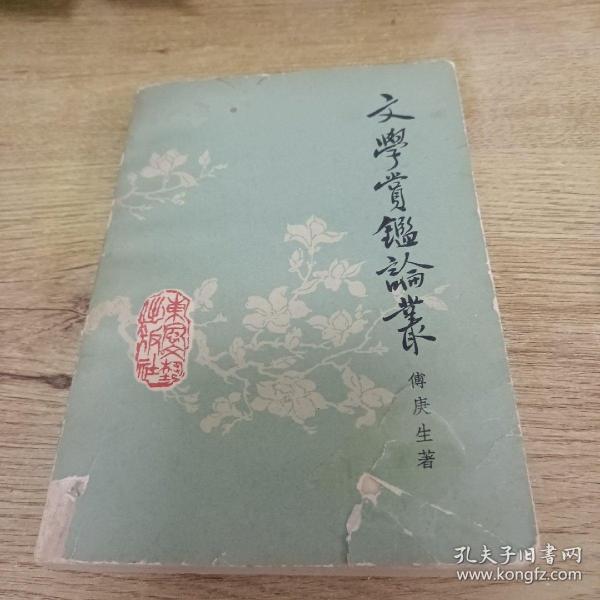 文學賞鑑論叢
傅庚生著
東風文藝
出版社
孔夫子旧書网
www.kongfz.com